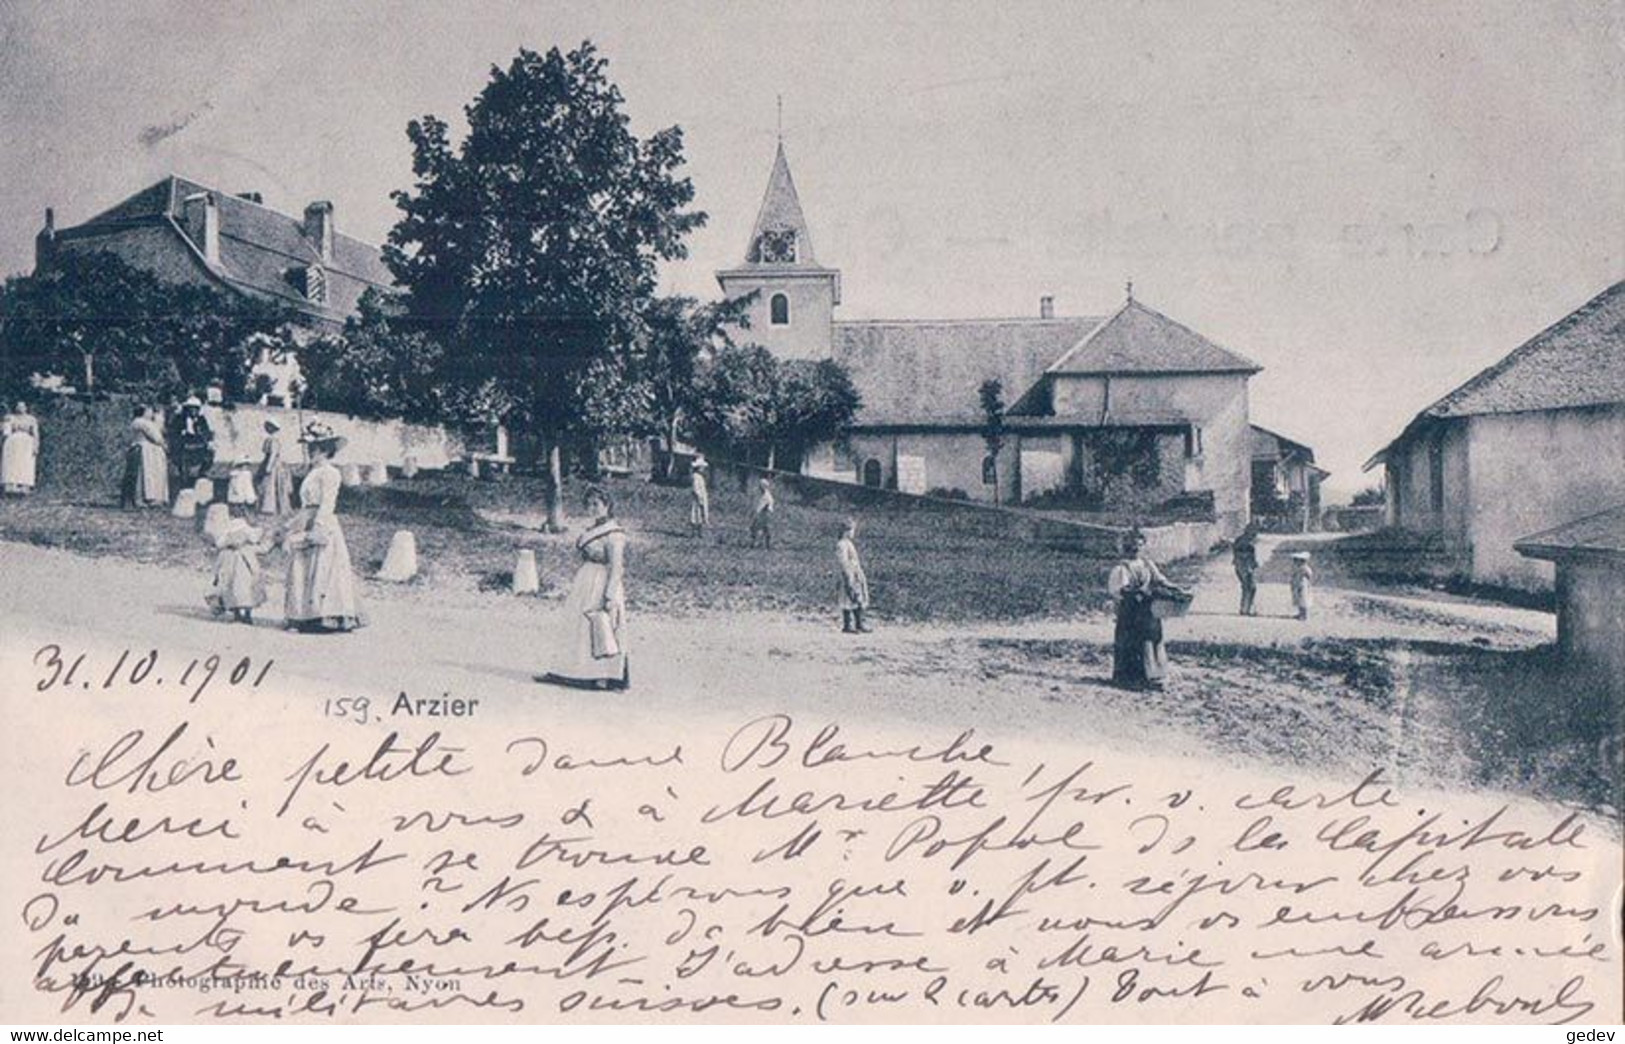 31.10.1901
159. Arzier
Chère petite dame Blanche,
Merci à vous & à Mariette pr. v. carte.
Comment se trouve Mr Popol ds la Capitale
du monde? Ns espérons que v. pt. séjour chez vos
parents vs fera bep. du bien et nous vs embrassons
affectueusement - J'adresse à Marie une armée
Photographie des Arts, Nyon
de militaires suisses. (sur 2 cartes) Tout à vous
MReboul
delcampe.net
gedev